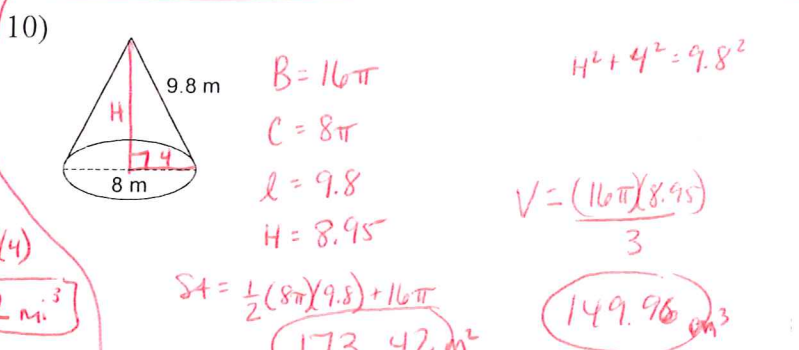 10)
9.8 m
H
4
8 m
B = 16π
C = 8π
l = 9.8
H = 8.95
SA = 1/2 (8π)(9.8) + 16π
173.42 m²
H² + 4² = 9.8²
V = (16π)(8.95)
3
149.96 m³
(4)
mi³